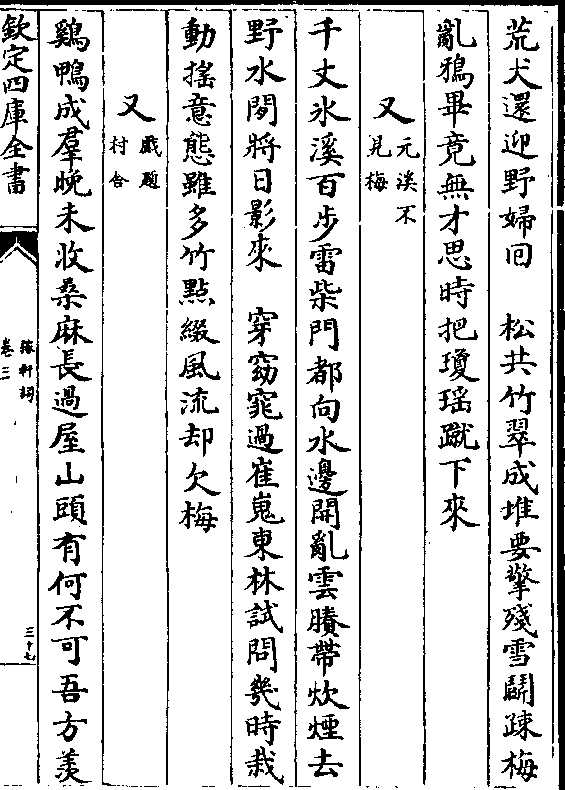 荒犬還迎野婦回　松共竹翠成堆要擎殘雪鬭疎梅
亂鴉畢竟無才思時把瓊瑶蹴下來
又元溪不見梅
千丈氷溪百步雷柴門都向水邊開亂雲賸帶炊煙去
野水閒將日影來　穿窈窕過崔嵬東林試問幾時栽
動搖意態雖多竹點綴風流却欠梅
又戲題村舍
鷄鴨成羣晚未收桑麻長過屋山頭有何不可吾方羡
欽定四庫全書
稼軒詞
卷三
三十七